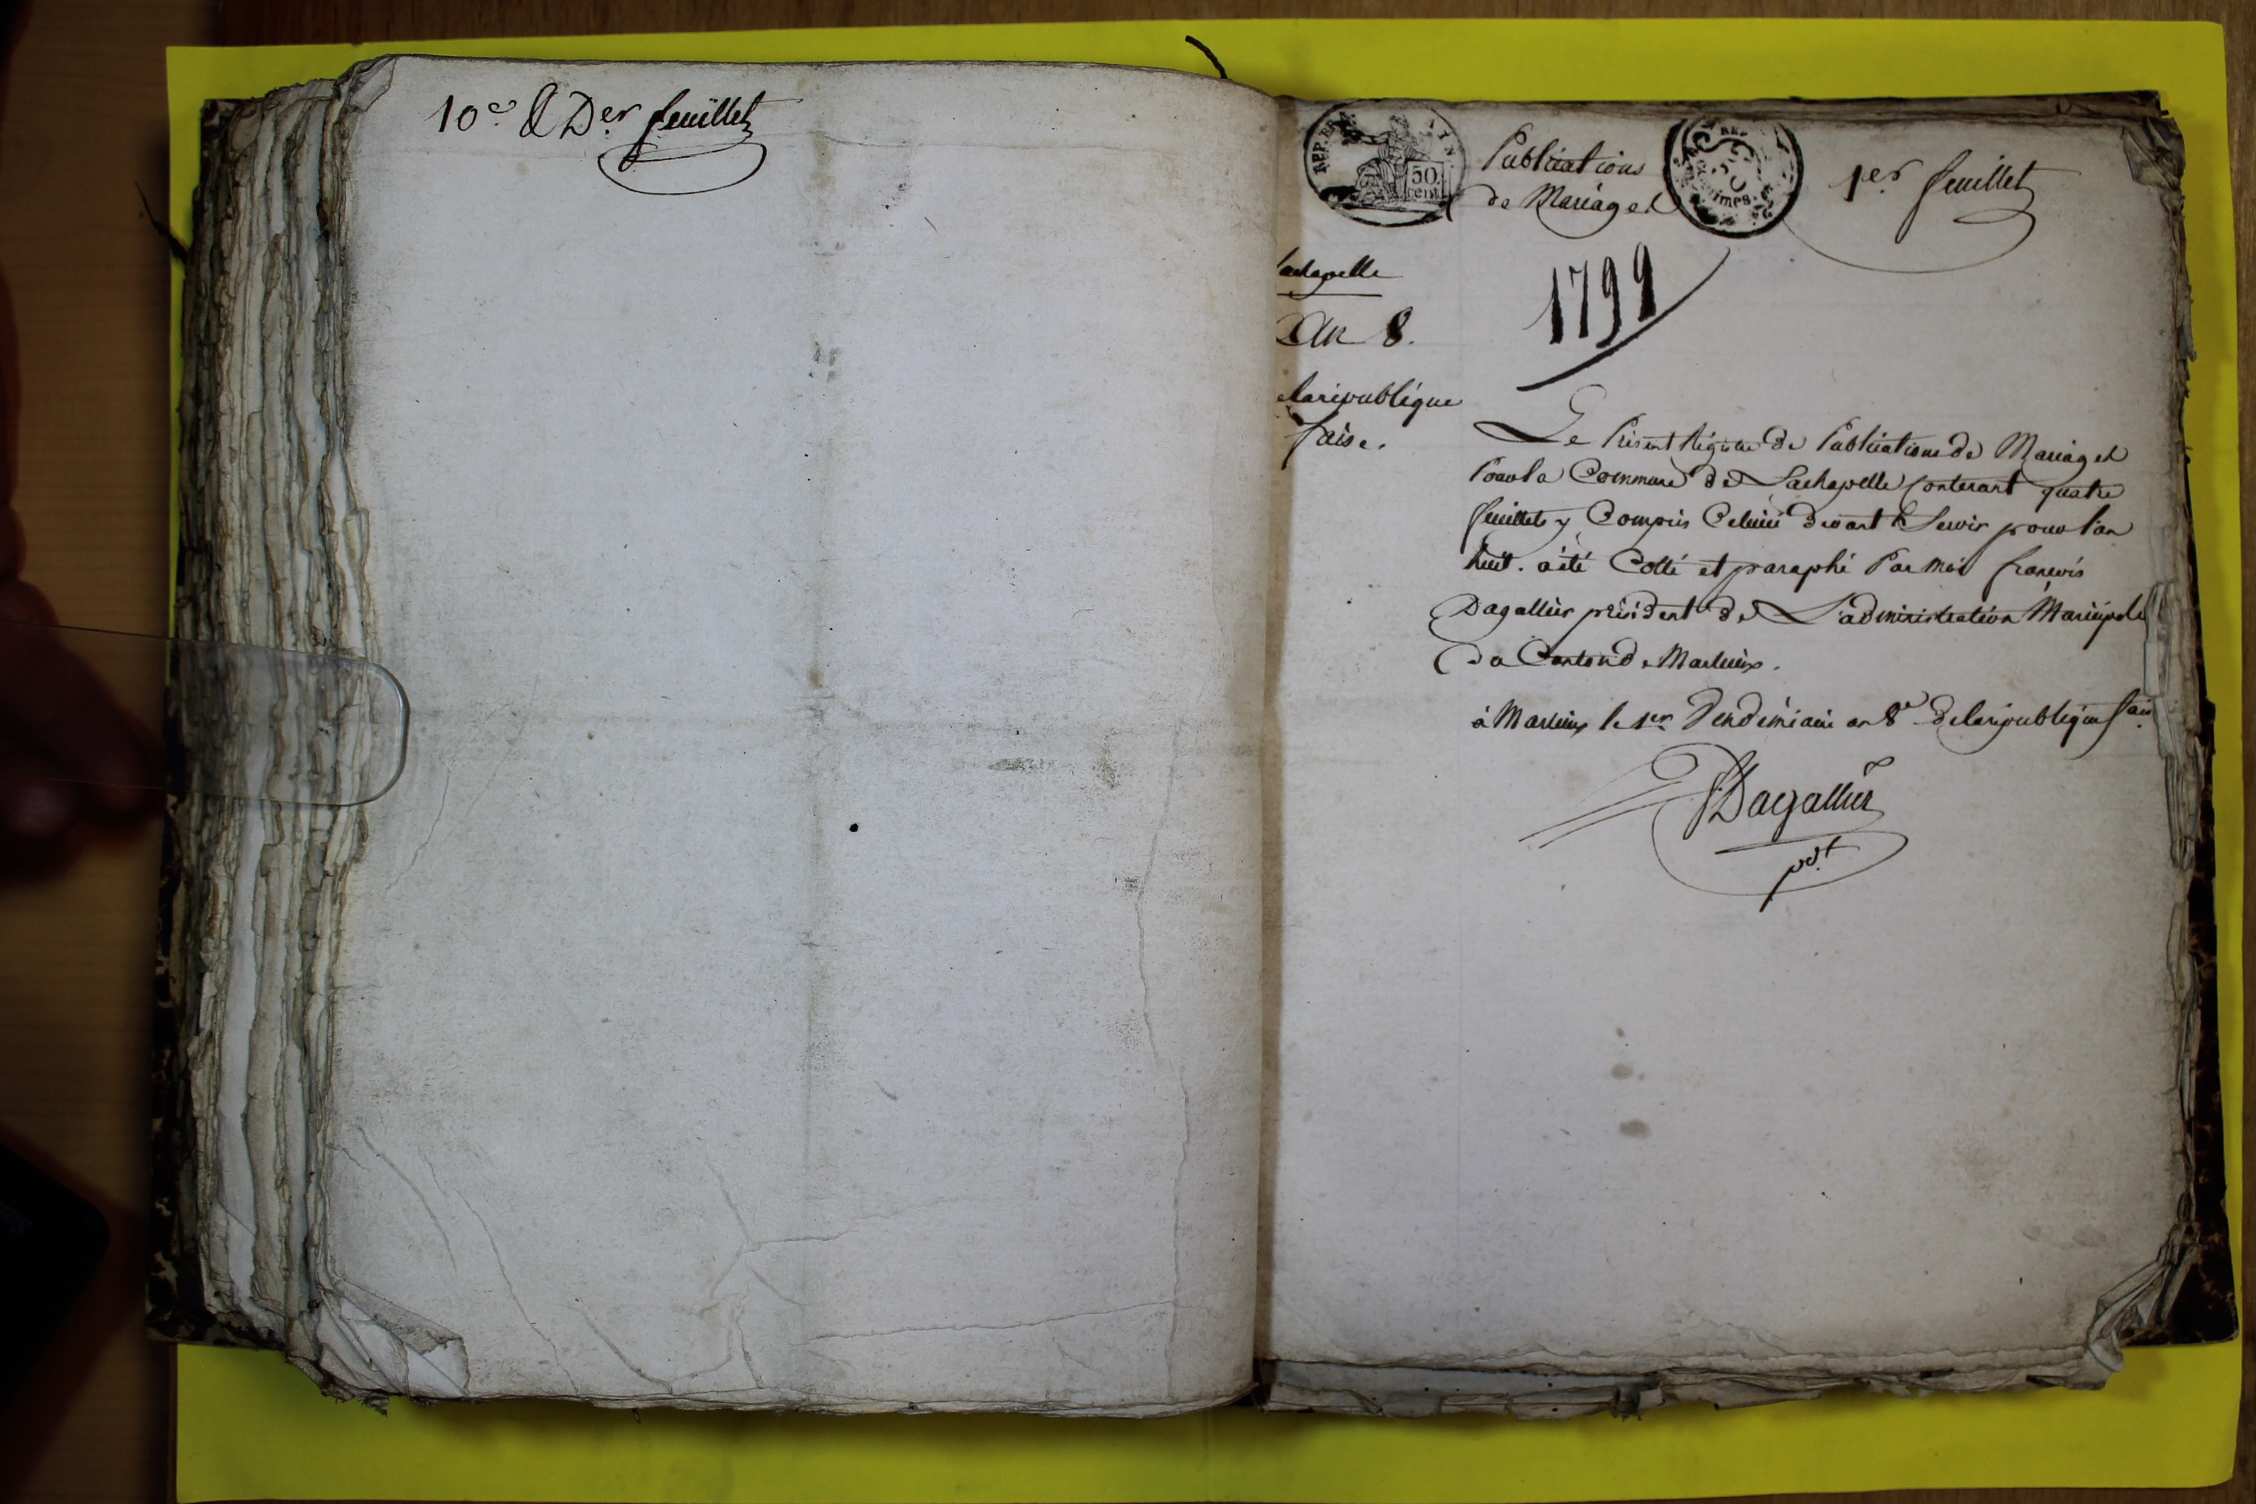 10e & Der feuillet
REP. FRA
50 cent
Publications
de Mariages
1er feuillet
Lachapelle
An 8.
1799
de la république
faise.
Le Présent Régistre de Publications de Mariages
Pour la Commune de Lachapelle Contenant quatre
feuillets y Compris Celuici devant Servir pour l'an
huit. a été Cotté et paraphé Par Moi françois
Dagallier président de L'administration Municipale
du Canton de Marlieux.
à Marlieux le 1er Vendémiaire an 8e de la république faise
Dagallier
pdt